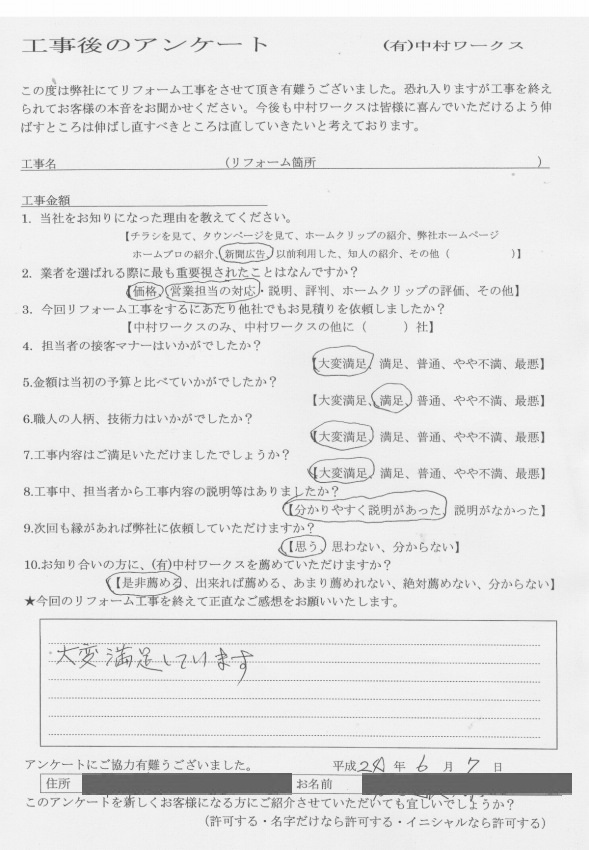 工事後のアンケート (有)中村ワークス
この度は弊社にてリフォーム工事をさせて頂き有難うございました。恐れ入りますが工事を終え
られてお客様の本音をお聞かせください。今後も中村ワークスは皆様に喜んでいただけるよう伸
ばすところは伸ばし直すべきところは直していきたいと考えております。
工事名 (リフォーム箇所 )
工事金額
1. 当社をお知りになった理由を教えてください。
【チラシを見て、タウンページを見て、ホームクリップの紹介、弊社ホームページ
ホームプロの紹介、新聞広告、以前利用した、知人の紹介、その他( )】
2. 業者を選ばれる際に最も重要視されたことはなんですか?
【価格、営業担当の対応・説明、評判、ホームクリップの評価、その他】
3. 今回リフォーム工事をするにあたり他社でもお見積りを依頼しましたか?
【中村ワークスのみ、中村ワークスの他に( )社】
4. 担当者の接客マナーはいかがでしたか?
【大変満足、満足、普通、やや不満、最悪】
5.金額は当初の予算と比べていかがでしたか?
【大変満足、満足、普通、やや不満、最悪】
6.職人の人柄、技術力はいかがでしたか?
【大変満足、満足、普通、やや不満、最悪】
7.工事内容はご満足いただけましたでしょうか?
【大変満足、満足、普通、やや不満、最悪】
8.工事中、担当者から工事内容の説明等はありましたか?
【分かりやすく説明があった、説明がなかった】
9.次回も縁があれば弊社に依頼していただけますか?
【思う、思わない、分からない】
10.お知り合いの方に、(有)中村ワークスを薦めていただけますか?
【是非薦める、出来れば薦める、あまり薦めれない、絶対薦めない、分からない】
★今回のリフォーム工事を終えて正直なご感想をお願いいたします。
大変満足しています
アンケートにご協力有難うございました。 平成 年 6 月 7 日
住所 お名前
このアンケートを新しくお客様になる方にご紹介させていただいても宜しいでしょうか?
(許可する・名字だけなら許可する・イニシャルなら許可する)